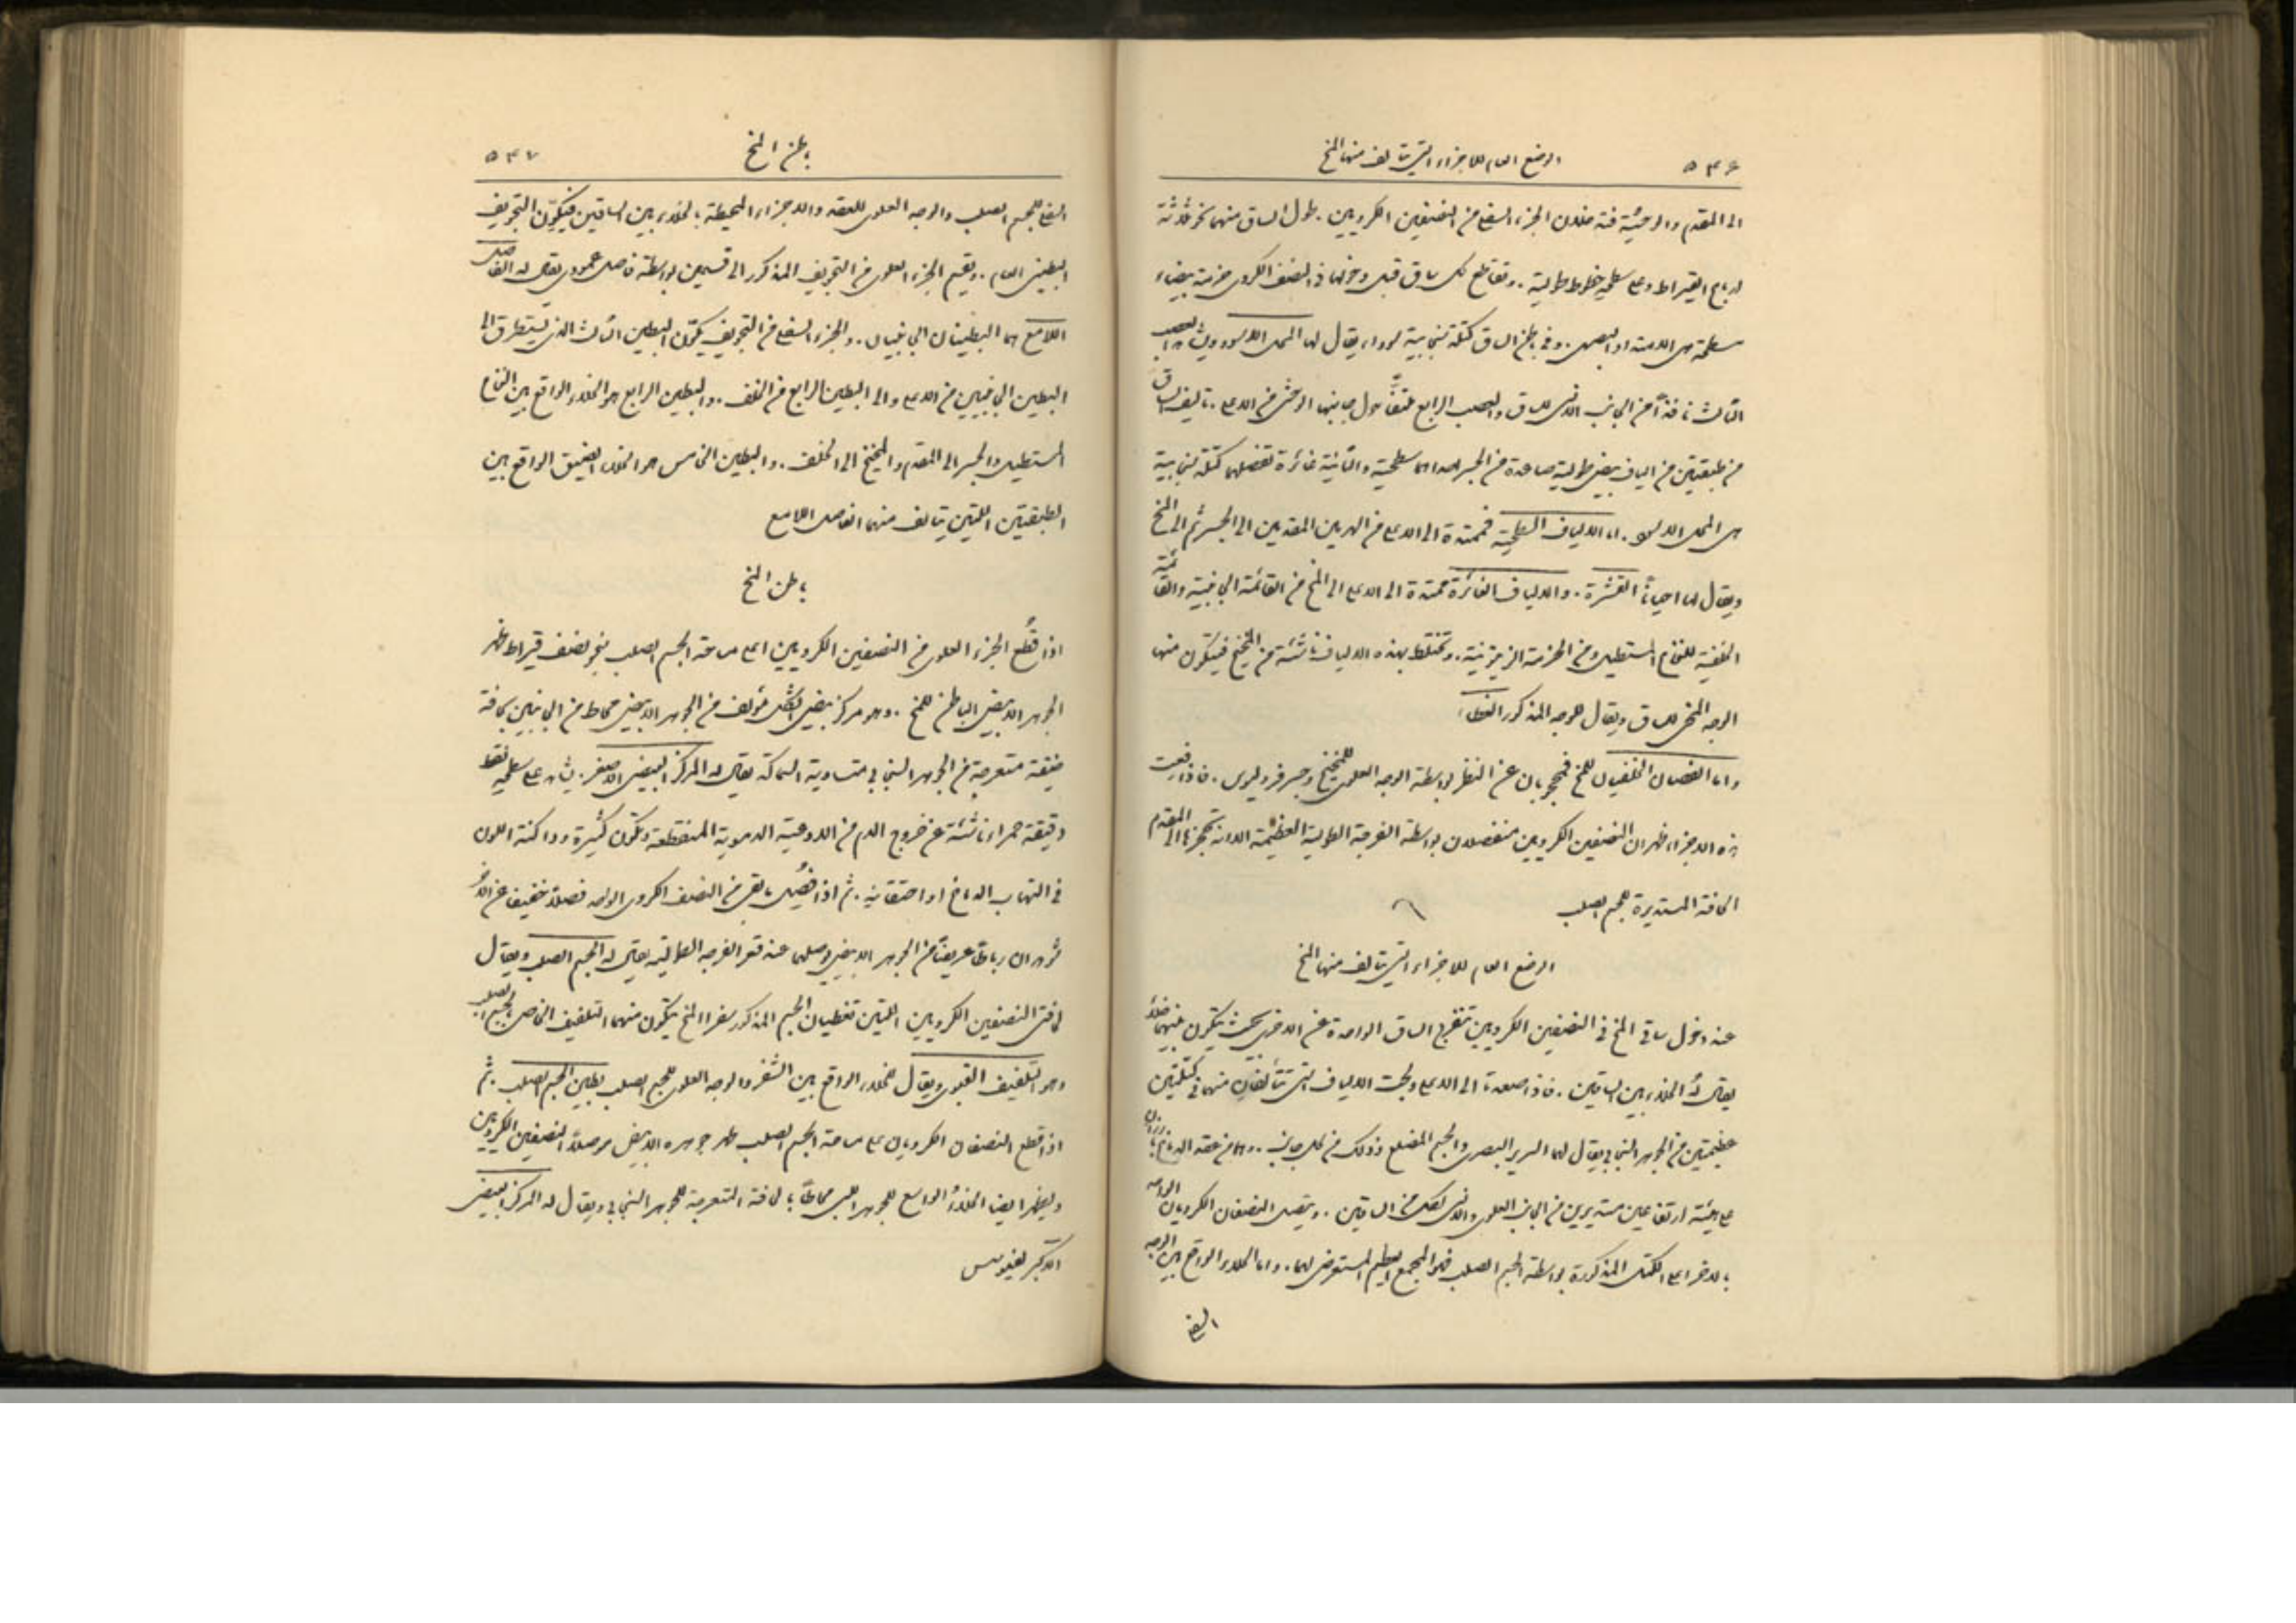 ٥٤٦
الوضع العام للاجزاء التي يتالف منها المخ
الى المقدم والوحشية فتدخلان الجزء السفلي من النصفين الكرويين. طول الساق منهما نحو ثلاثة
ارباع القيراط وعلى سطحها خطوط طولية. وتقاطع كل ساق قبل دخولها في النصف الكروي حزمة بيضاء
سطحية هي الادمة او البصري. وفي باطن الساق كتلة سنجابية سوداء يقال لها المحل الاسود ويشاهد العصب
الثالث نافذاً من الجانب الانسي للساق والعصب الرابع ملتفّاً حول جانبها الوحشي من الاعلى. تتالف الساق
من طبقتين من الياف بيض طولية صاعدة من الجسر احداهما سطحية والثانية غائرة تفصلهما كتلة سنجابية
هي المحل الاسود. اما الالياف السطحية فممتدة الى الاعلى من الهرمين المقدمين الى الجسر ثم الى المخ
ويقال لها احياناً القشرة. والالياف الغائرة ممتدة الى الاعلى الى المخ من القائمة الجانبية والقائمة
الخلفية للنخاع المستطيل ومن الحزمة الزيتونية. وتختلط بهذه الالياف ناشئة من المخيخ فيتكون منها
الوجه المخي للساق ويقال للوجه المذكور الغطاء
واما الفصان الخلفيان للمخ فمحجوبان عن النظر بواسطة الوجه العلوي للمخيخ وجسر فروليوس. فاذا رفعت
هذه الاجزاء ظهر ان النصفين الكرويين منفصلان بواسطة الفرجة الطولية العظيمة الا انه تحجزها الى المقدم
الحافة المستديرة للجسم الصلب
الوضع العام للاجزاء التي يتالف منها المخ
عند دخول ساقي المخ في النصفين الكرويين تنفرج الساق الواحدة عن الاخرى بحيث يتكون بينهما خلاء
يقال لهُ الخلاء بين الساقين. فاذا صعدتا الى الاعلى ولجت الالياف التي تتألفان منها في كتلتين
عظيمتين من الجوهر السنجابي يقال لهما السرير البصري والجسم المضلع وذلك من كل جانب. وهما من عقد الدماغ بارزان
على هيئة ارتفاعين مستديرين من الجانب العلوي والانسي لكل من الساقين. ويتصل النصفان الكرويان الواحد
بالاخر اعلى الكتل المذكورة بواسطة الجسم الصلب فهو المجمع العظيم المستعرض لهما. واما الخلاء الواقع بين الوجه
السفلي
باطن المخ
٥٤٧
السفلي للجسم الصلب والوجه العلوي للعقد والاجزاء المحيطة بالخلاء بين الساقين فيكوّن التجويف
البطيني العام. ويقسم الجزء العلوي من التجويف المذكور الى قسمين بواسطة فاصل عمودي يقال له الفاصل
اللامع هما البطينان الجانبيان. والجزء السفلي من التجويف يكوّن البطين الثالث الذي يتطرق الى
البطينين الجانبيين من الاعلى والى البطين الرابع من الخلف. والبطين الرابع هو الخلاء الواقع بين النخاع
المستطيل والجسر الى المقدم والمخيخ الى الخلف. والبطين الخامس هو الخلاء الضيق الواقع بين
الطبقتين اللتين يتالف منهما الفاصل اللامع
باطن المخ
اذا قُطع الجزء العلوي من النصفين الكرويين اعلى ساحة الجسم الصلب بنحو نصف قيراط ظهر
الجوهر الابيض الباطن للمخ. وهو مركز بيضي الشكل مؤلف من الجوهر الابيض محاط من الجانبين بحافة
ضيقة متعرجة من الجوهر السنجابي متساوية السماكة يقال له المركز البيضي الاصغر. يشاهد على سطحه نقط
دقيقة حمراء ناشئة عن خروج الدم من الاوعية الدموية المنقطعة وتكون كثيرة وداكنة اللون
في التهاب الدماغ او احتقانه. ثم اذا فُصل ما بقي من النصف الكروي الواحد فصلاً خفيفاً عن الآخر
شوهد ان رباطاً عريضاً من الجوهر الابيض يوصلهما عند قعر الفرجة الطولية يقال له الجسم الصلب ويقال
لحافتي النصفين الكرويين اللتين تغطيان الجسم المذكور شفرا المخ يتكون منهما التلفيف الخاص بالجسم الصلب
وهو التلفيف القبوي ويقال للخلاء الواقع بين الشفر والوجه العلوي للجسم الصلب بطين الجسم الصلب. ثم
اذا قطع النصفان الكرويان على ساحة الجسم الصلب ظهر جوهره الابيض موصلاً النصفين الكرويين
ويظهر ايضاً الخلاءُ الواسع للجوهر اللبي محاطاً بالحافة المتعرجة للجوهر السنجابي ويقال له المركز البيضي
الاكبر لفيوسنس